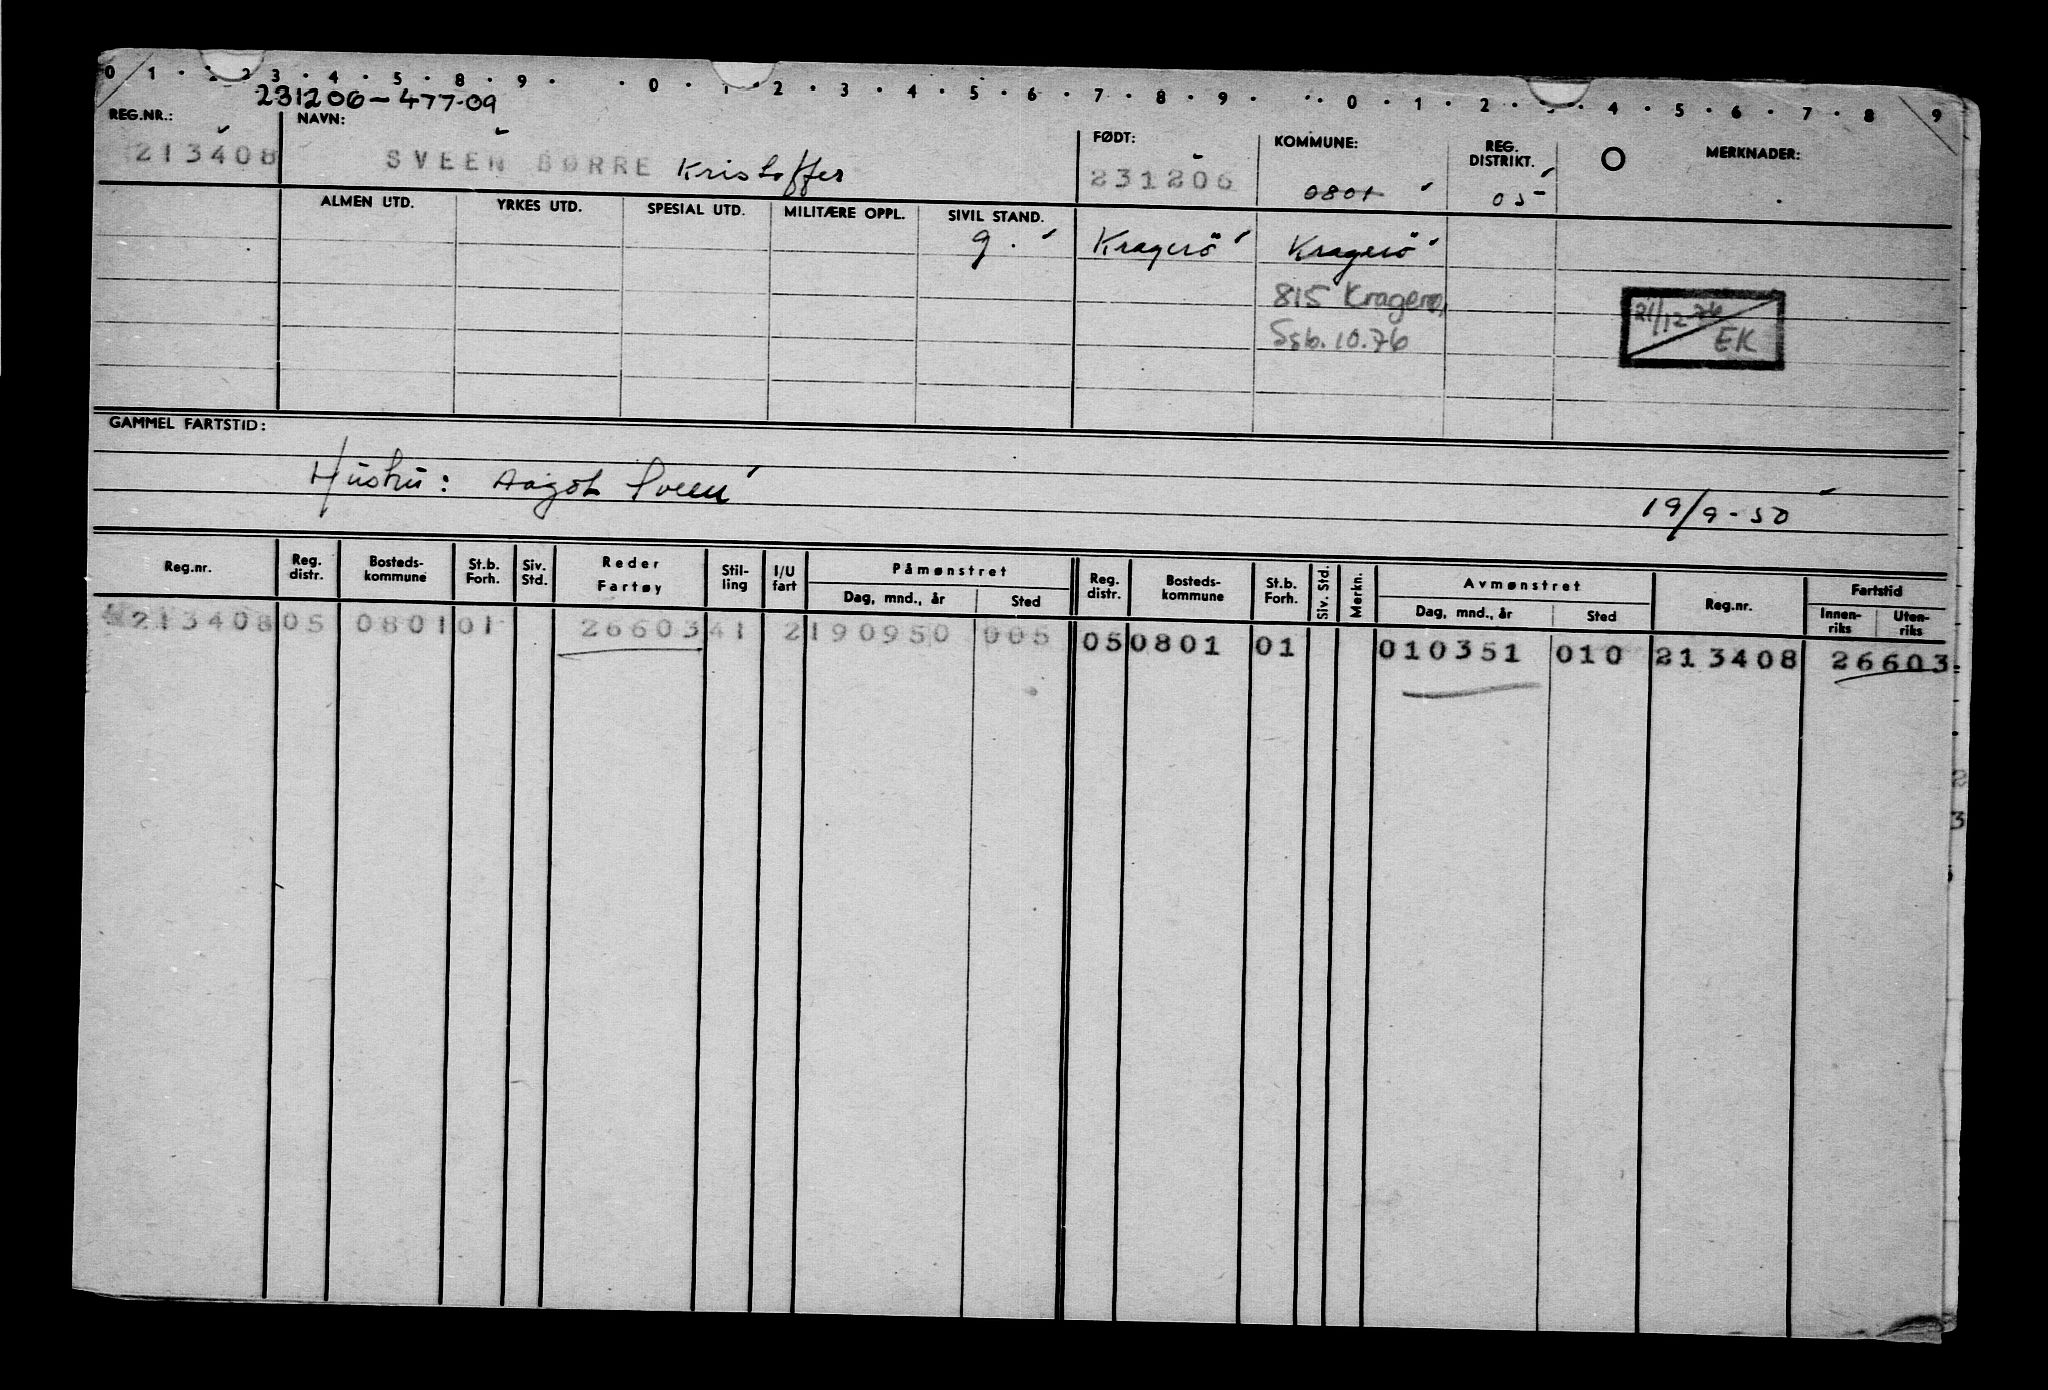 0 1 · 2 · 2 3 · 4 · 5 · 8 · 9 · · 0 · 1 · 2 · 3 · 4 · 5 · 6 · 7 · 8 · 9 · · · 0 · 1 · 2 · 3 · 4 · 5 · 6 · 7 · 8 9
231206-477-09
REG.NR.: NAVN: FØDT: KOMMUNE: REG. DISTRIKT. O MERKNADER:
213408 SVEEN BØRRE Kristoffer 231206 0801 05
ALMEN UTD. YRKES UTD. SPESIAL UTD. MILITÆRE OPPL. SIVIL STAND.
g. Kragerö Kragerö
815 Kragerø,
Ssb. 10.76
21/12-76 EK
GAMMEL FARTSTID:
Hustru: Aagot Sveen
19/9-50
Reg.nr. Reg. distr. Bosteds-kommune St.b. Forh. Siv. Std. Reder Fartøy Stil-ling I/U fart Påmønstret Dag, mnd., år Sted Reg. distr. Bosteds-kommune St.b. Forh. Siv. Std. Merkn. Avmønstret Dag, mnd., år Sted Reg.nr. Fartstid Innen-riks Uten-riks
213408 05 0801 01 26603 41 2 190950 005 05 0801 01 010351 010 213408 26603
2
3